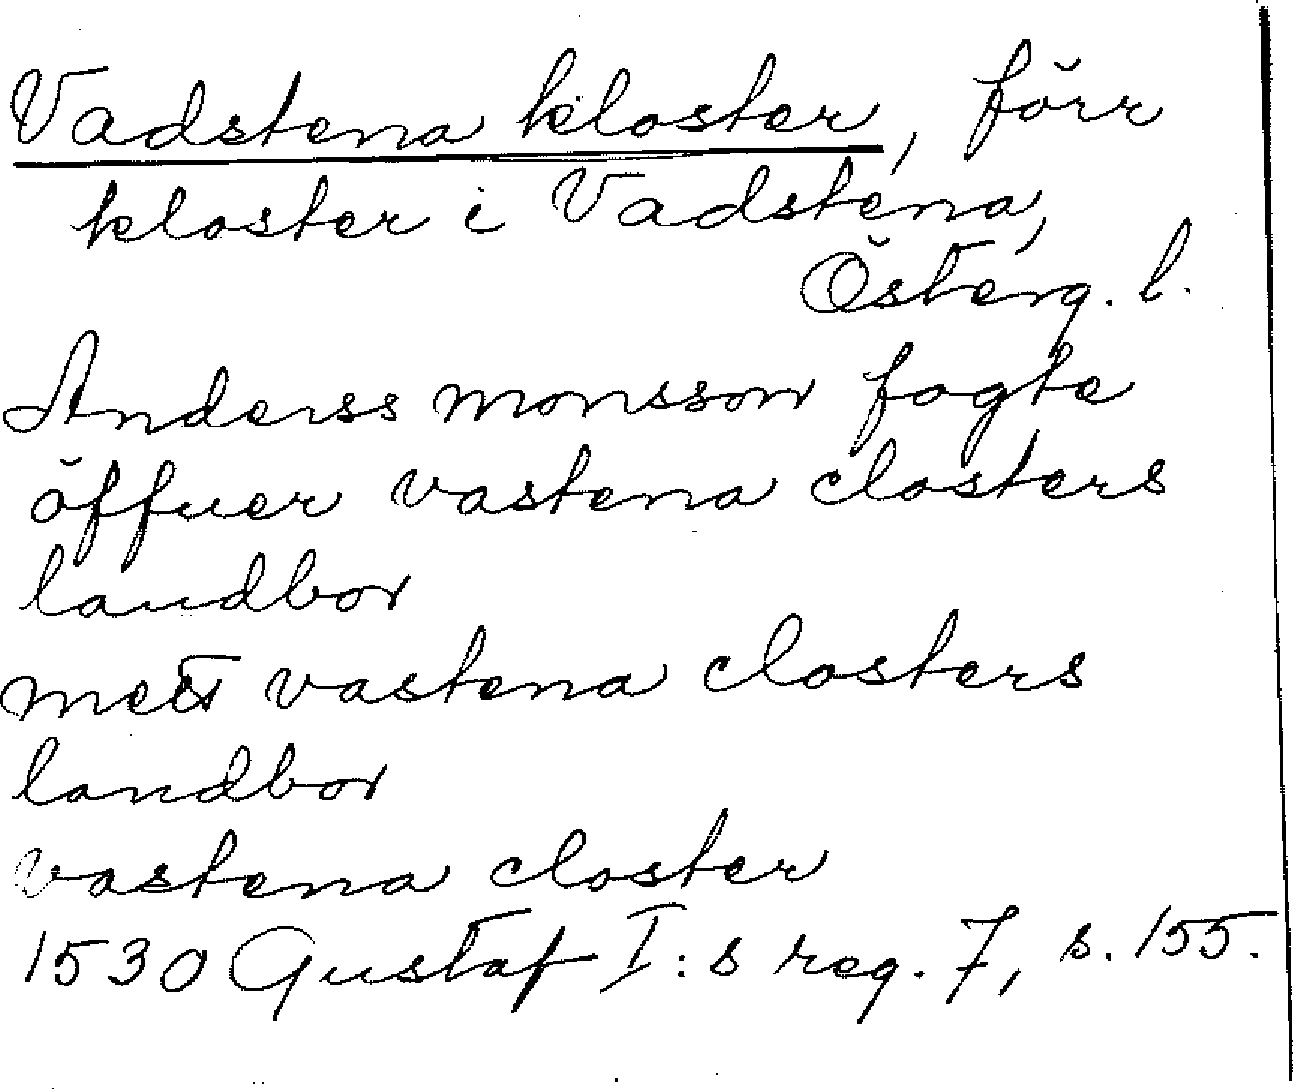 Vadstena kloster, förr
kloster i Vadstena,
Österg. l.
Anderss monsson fogte
öffuer vastena closters
landbor
mett vastena closters
landbor
vastena closter
1530 Gustaf I:s reg. 7, s. 155.